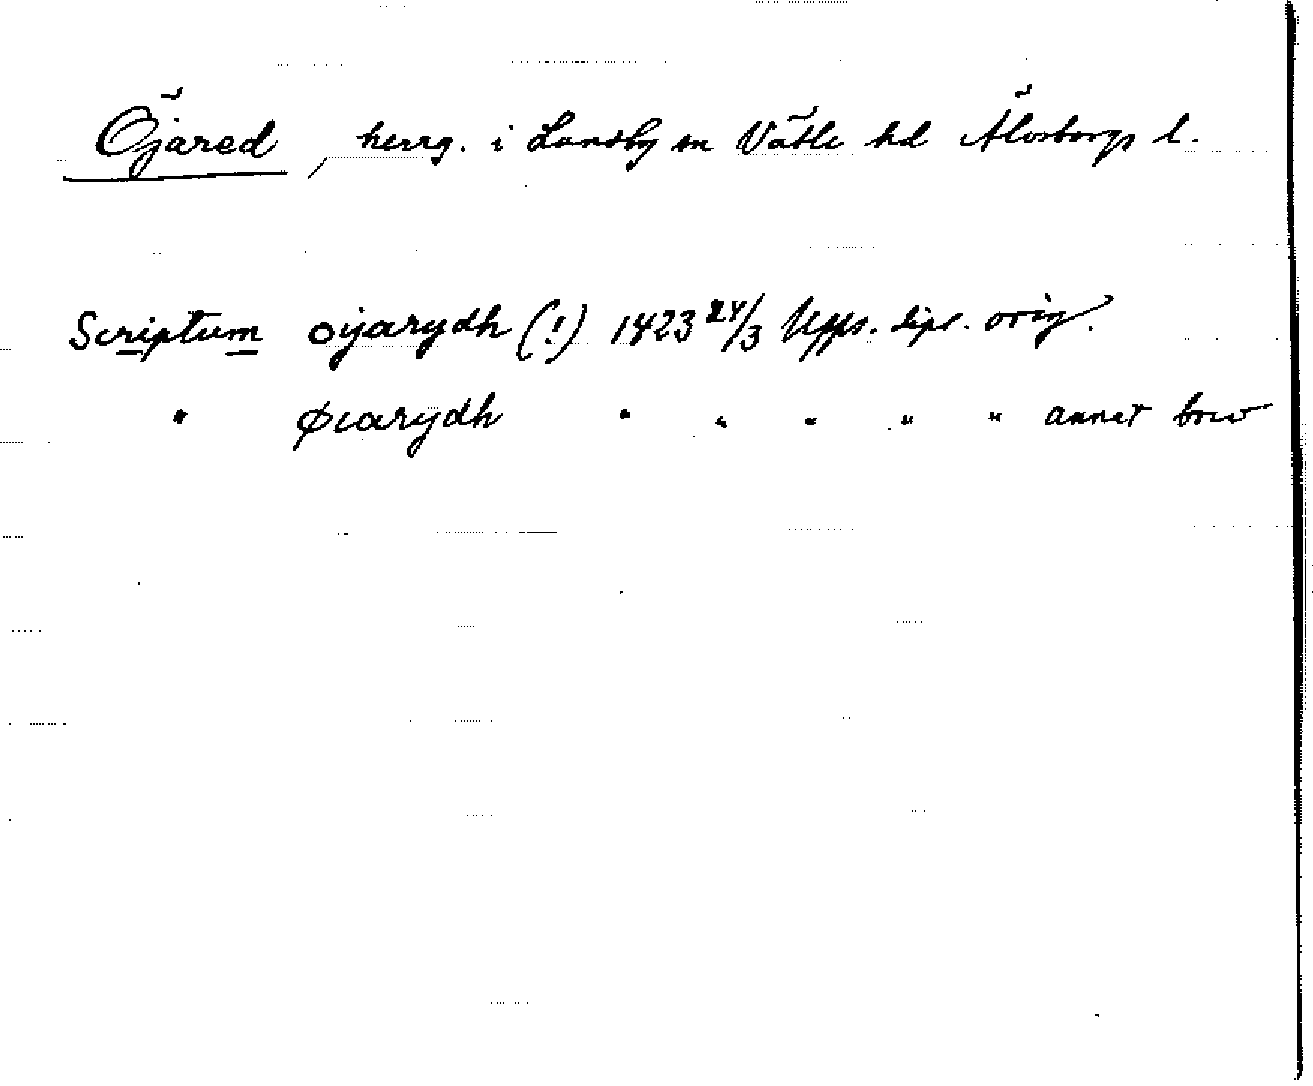 Öjared, herrg. i Lundby sn Vätle hd Älvsborgs l.
Scriptum oijarydh (!) 1423 24/3 Upps. dipl. orig.
" øiarydh " " " " " annat brev